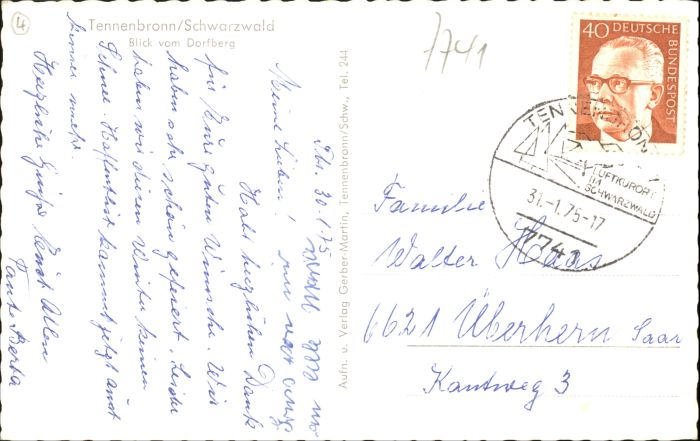 4
Tennenbronn/Schwarzwald
Blick vom Dorfberg
7741
40 DEUTSCHE BUNDESPOST
TENNENBRONN
LUFTKURORT
IM
SCHWARZWALD
31.-1.75-17
7741
Aufn. u. Verlag Gerber-Martin, Tennenbronn/Schw., Tel. 244
Tbr. 30.1.75
Meine Lieben!
Habt herzlichen Dank
für Eure guten Wünsche. Wir
haben sehr schön gefeiert. Leider
haben wir diesen Winter keinen
Schnee. Hoffentlich kommt jetzt auch
keiner mehr.
Herzliche Grüße Euch Allen
Tante Berta
Familie
Walter Haas
6621 Überherrn Saar
Kantweg 3